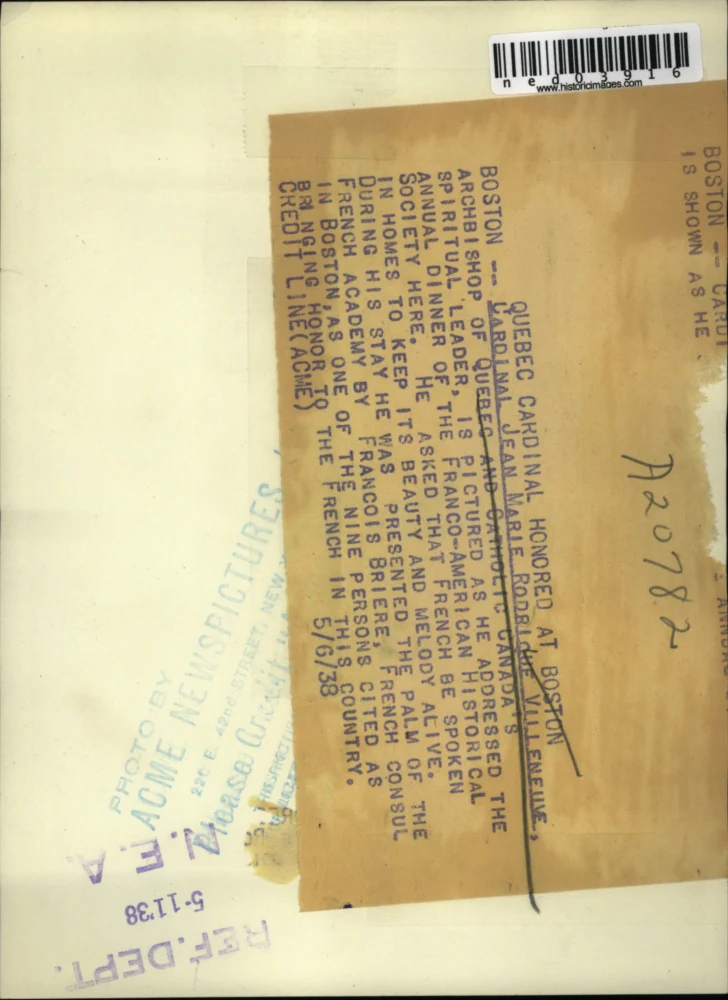 ned03916
www.historicimages.com
BOSTON -- CARDI
IS SHOWN AS HE
A20782
QUEBEC CARDINAL HONORED AT BOSTON
BOSTON -- CARDINAL JEAN MARIE RODRIQUE VILLENEUVE,
ARCHBISHOP OF QUEBEC AND CATHOLIC CANADA'S
SPIRITUAL LEADER, IS PICTURED AS HE ADDRESSED THE
ANNUAL DINNER OF THE FRANCO-AMERICAN HISTORICAL
SOCIETY HERE. HE ASKED THAT FRENCH BE SPOKEN
IN HOMES TO KEEP ITS BEAUTY AND MELODY ALIVE.
DURING HIS STAY HE WAS PRESENTED THE PALM OF THE
FRENCH ACADEMY BY FRANCOIS BRIERE, FRENCH CONSUL
IN BOSTON, AS ONE OF THE NINE PERSONS CITED AS
BRINGING HONOR TO THE FRENCH IN THIS COUNTRY.
CREDIT LINE(ACME) 5/6/38
PHOTO BY
ACME NEWSPICTURES
220 E. 42nd STREET, NEW
Please Credit
N.E.A.
5-11'38
REF. DEPT.